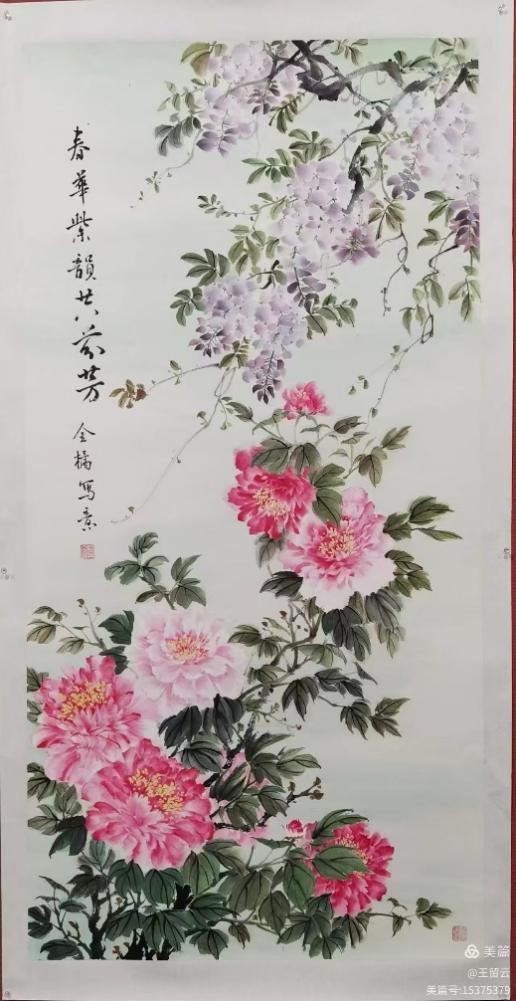 春華紫韻共芬芳
金橋寫意
美篇
@王留云
美篇号:15375379